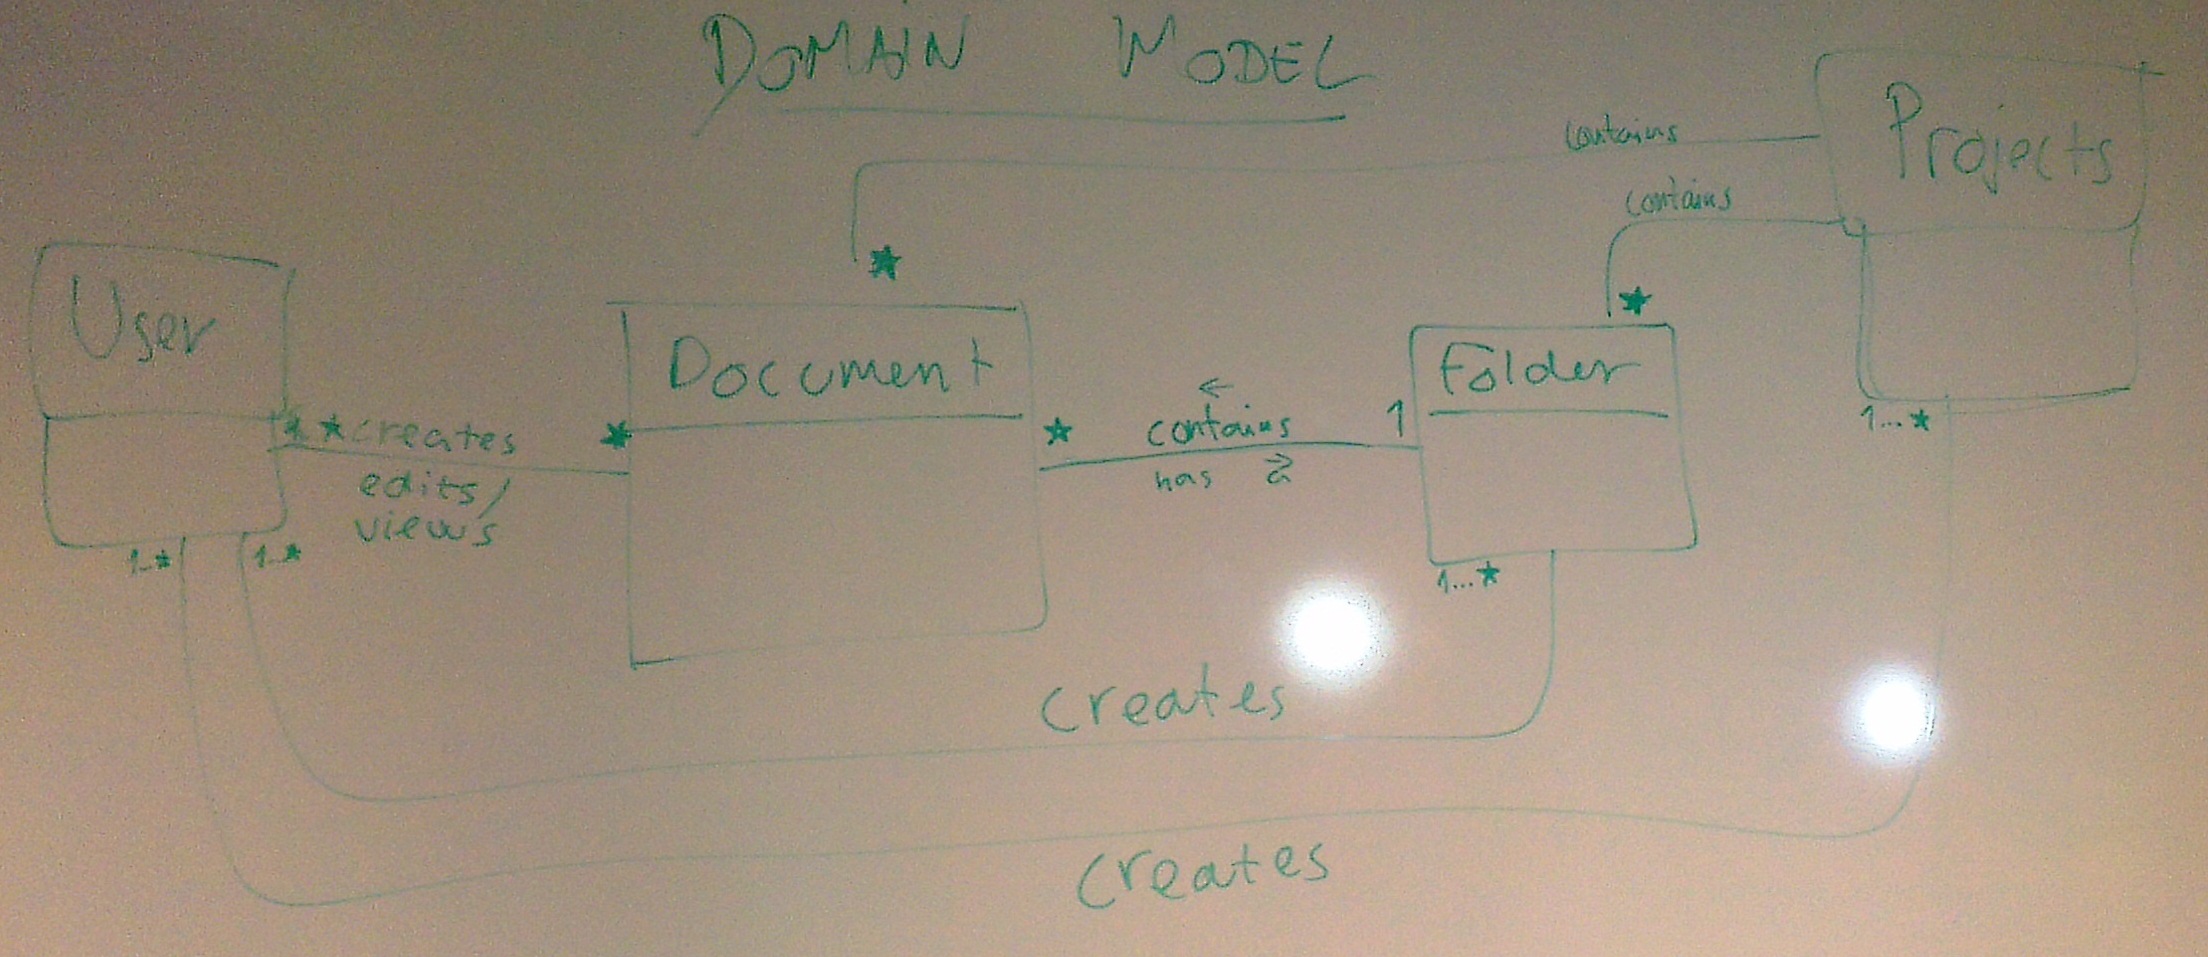 DOMAIN MODEL
contains
Projects
contains
★
★
User
Document
Folder
★ creates
★
★
←
contains
1
1...★
edits/
views
has
1..★
1..★
1...★
creates
creates